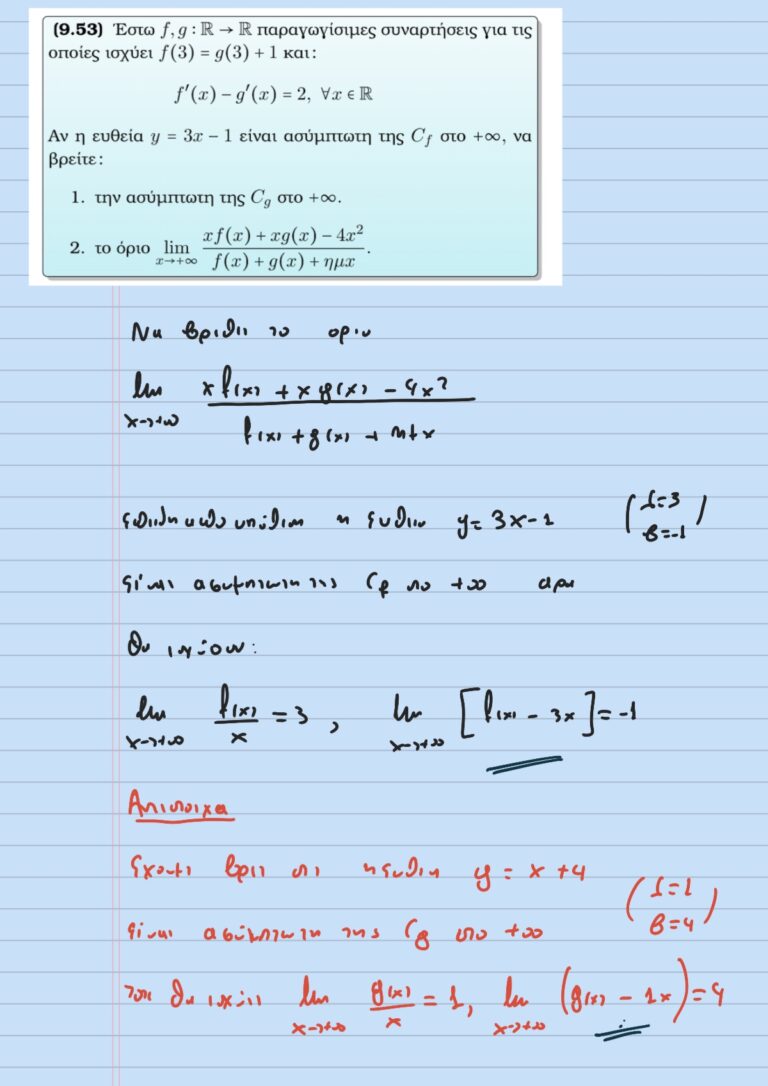 (9.53) Έστω f, g : ℝ → ℝ παραγωγίσιμες συναρτήσεις για τις
οποίες ισχύει f(3) = g(3) + 1 και:
f′(x) − g′(x) = 2, ∀x ∈ ℝ
Αν η ευθεία y = 3x − 1 είναι ασύμπτωτη της C_f στο +∞, να
βρείτε:
1. την ασύμπτωτη της C_g στο +∞.
2. το όριο lim_{x→+∞} (xf(x) + xg(x) − 4x²) / (f(x) + g(x) + ημx).
Να βρεθει το οριο
lim_{x→+∞} (x f(x) + x g(x) − 4x²) / (f(x) + g(x) + ημx)
επειδη απο υποθεση η ευθεια y = 3x − 1 (λ=3 β=-1)
ειναι ασυμπτωτη της C_f στο +∞ αρα
θα ισχυουν:
lim_{x→+∞} f(x)/x = 3 , lim_{x→+∞} [f(x) − 3x] = −1
Αντιστοιχα
εχουμε βρει οτι η ευθεια y = x + 4 (λ=1 β=4)
ειναι ασύμπτωτη της C_g στο +∞
τοτε θα ισχυει lim_{x→+∞} g(x)/x = 1, lim_{x→+∞} (g(x) − 1x) = 4